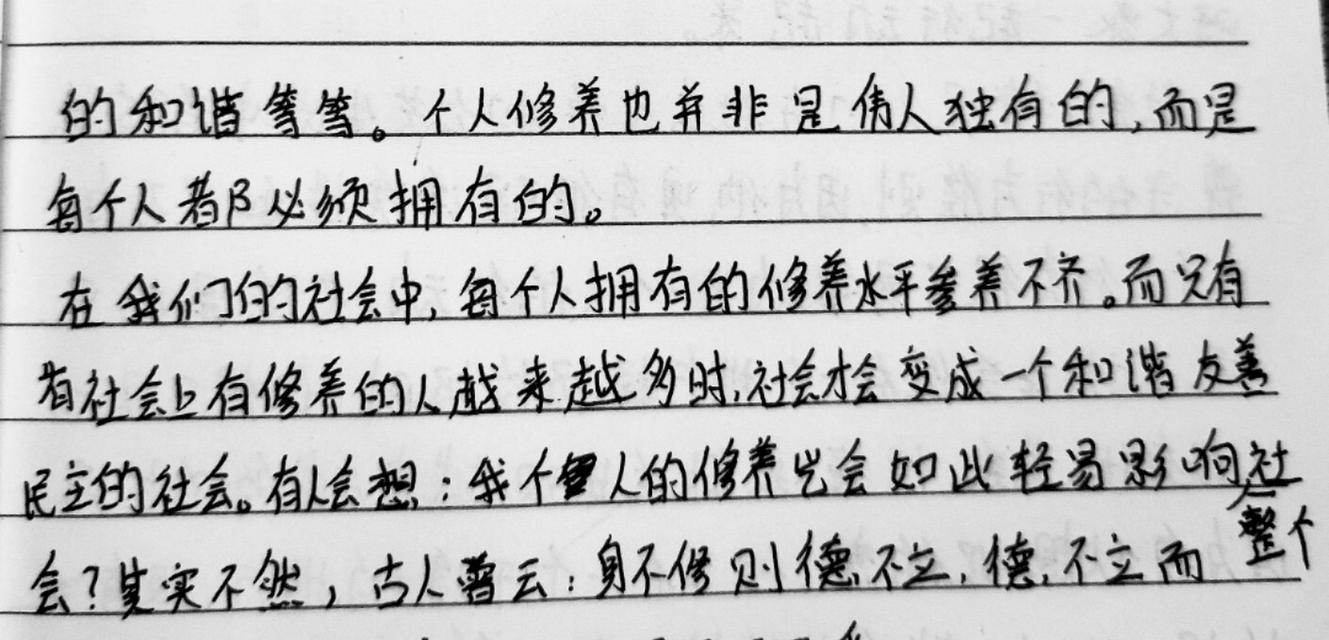 的和谐等等。个人修养也并非是伟人独有的,而是
每个人都必须拥有的。
在我们的社会中,每个人拥有的修养水平参养不齐。而只有
当社会上有修养的人越来越多时,社会才会变成一个和谐友善
民主的社会。有人会想:我个人的修养岂会如此轻易影响整个社
会?其实不然,古人曾云:身不修则德不立,德不立而